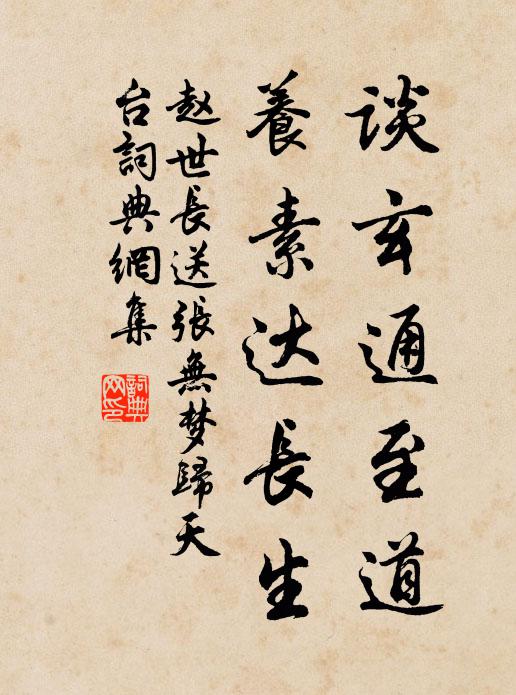 谈玄通至道
養素达長生
赵世長送張無梦歸天
台詞典網集
詞典
网印